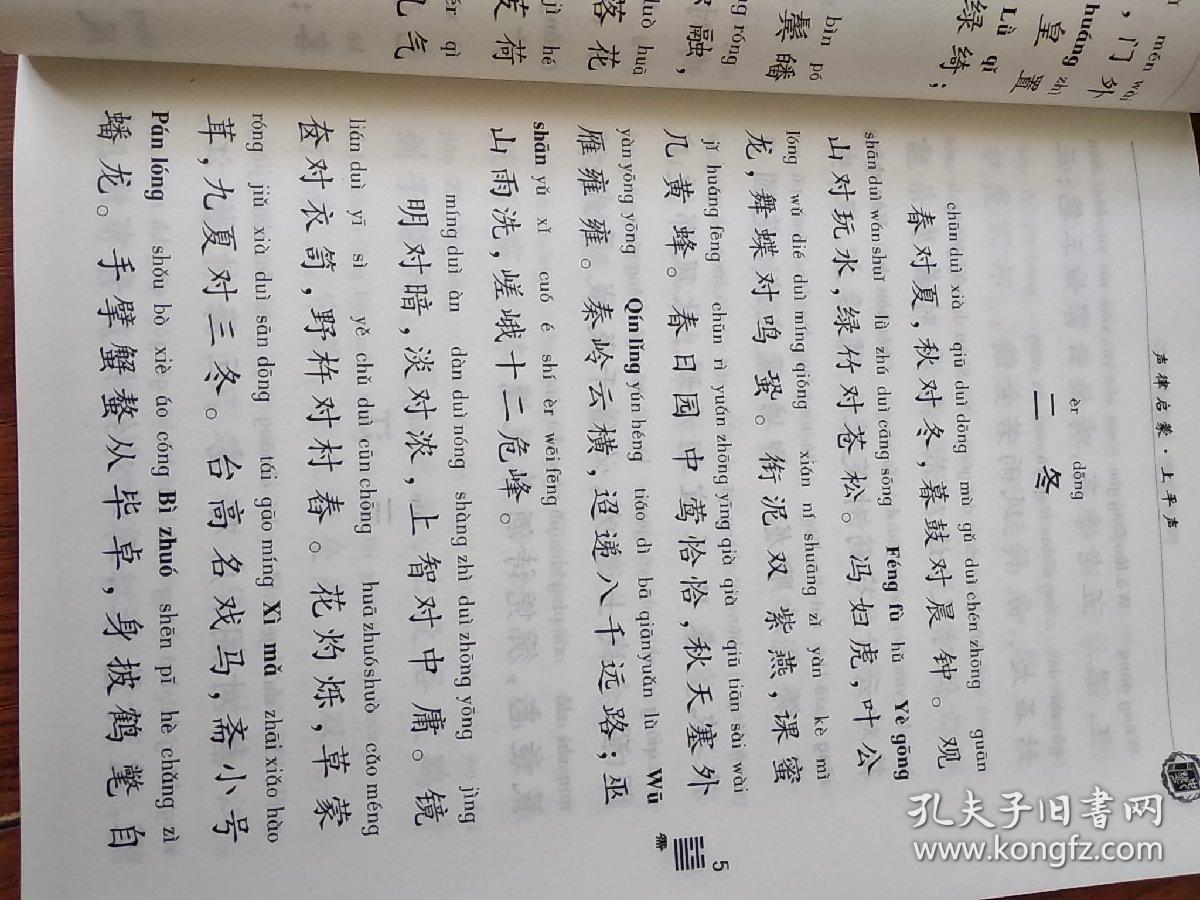 声律启蒙·上平声
èr dōng
二 冬
chūn duì xià qiū duì dōng mù gǔ duì chén zhōng guān
春对夏，秋对冬，暮鼓对晨钟。观
shān duì wán shuǐ lǜ zhú duì cāng sōng Féng fù hǔ Yè gōng
山对玩水，绿竹对苍松。冯妇虎，叶公
lóng wǔ dié duì míng qióng xián ní shuāng zǐ yàn kè mì
龙，舞蝶对鸣蛩。衔泥双紫燕，课蜜
jǐ huáng fēng chūn rì yuán zhōng yīng qià qià qiū tiān sài wài
几黄蜂。春日园中莺恰恰，秋天塞外
yàn yōng yōng Qín lǐng yún héng tiáo dì bā qiān yuǎn lù Wū
雁雍雍。秦岭云横，迢递八千远路；巫
shān yǔ xǐ cuó é shí èr wēi fēng
山雨洗，嵯峨十二危峰。
míng duì àn dàn duì nóng shàng zhì duì zhōng yōng jìng
明对暗，淡对浓，上智对中庸。镜
lián duì yī sì yě chǔ duì cūn chōng huā zhuó shuò cǎo méng
奁对衣笥，野杵对村舂。花灼烁，草蒙
róng jiǔ xià duì sān dōng tái gāo míng Xì mǎ zhāi xiǎo hào
茸，九夏对三冬。台高名戏马，斋小号
Pán lóng shǒu bò xiè áo cóng Bì zhuó shēn pī hè chǎng zì
蟠龙。手擘蟹螯从毕卓，身披鹤氅自
5
mén wài
，门外
huáng zhì
皇置
Lǜ qǐ
绿绮；
bìn pó
鬓皤
róng
融，
luò huā
落花
jì hé
芰荷
qì
几气
孔夫子旧书网
www.kongfz.com